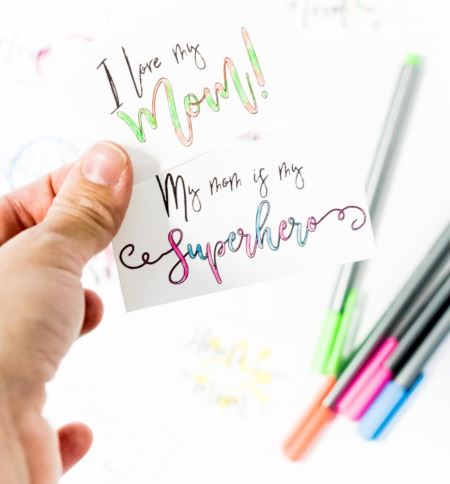 I love my
Mom!
My mom is my
Superhero